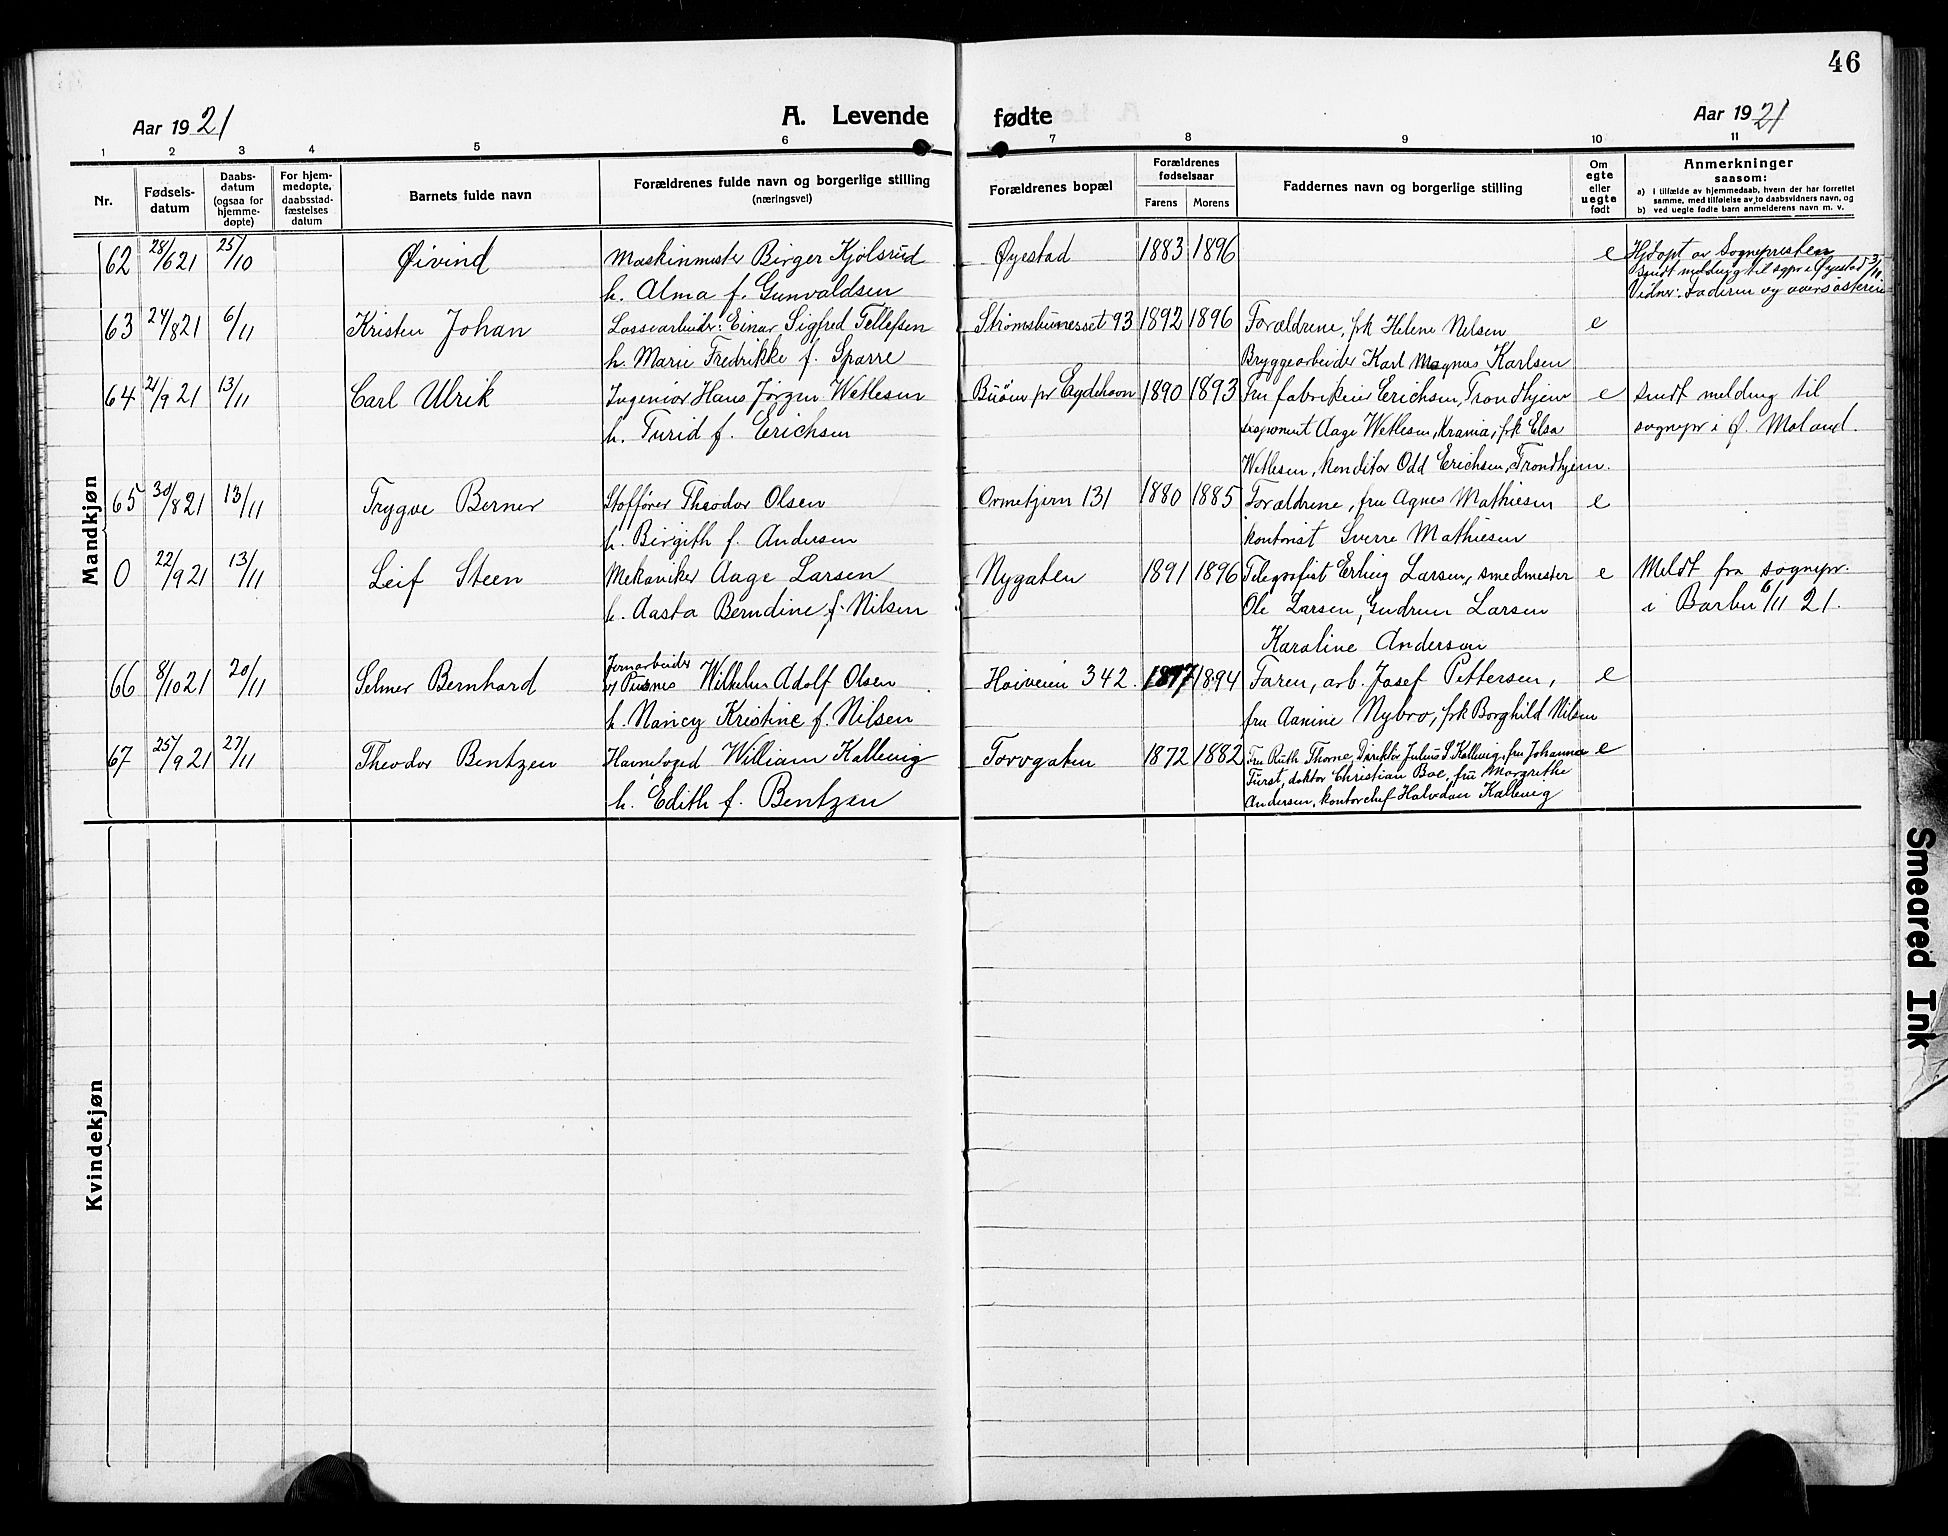 46
Aar 1921
A. Levende fødte
Aar 1921
1 2 3 4 5 6 7 8 9 10 11
Nr.
Fødsels-
datum
Daabs-
datum
(ogsaa for
hjemme-
døpte)
For hjem-
medøpte,
daabsstad-
fæstelses
datum
Barnets fulde navn
Forældrenes fulde navn og borgerlige stilling
(næringsvei)
Forældrenes bopæl
Forældrenes
fødselsaar
Farens Morens
Faddernes navn og borgerlige stilling
Om
egte
eller
uegte
født
Anmerkninger
saasom:
a) I tilfælde av hjemmedaab, hvem der har forrettet
samme, med tilføielse av to daabsvidners navn, og
b) ved uegte fødte barn anmelderens navn m. v.
Mandkjøn
62 28/6 21 25/10 Øivind
Maskinmester Birger Kjølsrud
h. Alma f. Gunvaldsen
Øyestad 1883 1896 e
Hjdøpt av Sognepresten
Sendt melding til sgpr i Øyestad 3/11
Vidner: Faderen og oversøsteren
63 24/8 21 6/11 Kristen Johan
Lossearbeider: Einar Sigfred Tellefsen
h. Marie Fredrikke f. Sparre
Strømsbuneset 93 1892 1896
Forældrene, frk Helene Nilsen
Bryggearbeider Karl Magnus Karlsen
e
64 21/9 21 13/11 Carl Ulrik
Ingeniør Hans Jørgen Wetlesen
h. Turid f. Erichsen
Buøen pr Eydehavn 1890 1893
Fru fabrikeier Erichsen, Trondhjem
disponent Aage Wetlesen, Krania, frk Elsa
Wetlesen, Konditor Odd Erichsen, Trondhjem.
e
sendt melding til
sognepr i Ø. Moland.
65 30/8 21 13/11 Trygve Berner
Stoffører Theodor Olsen
h. Birgith f. Andersen
Ormetjern 131 1880 1885
Forældrene, fru Agnes Mathiesen
kontorist Sverre Mathiesen
e
0 22/9 21 13/11 Leif Steen
Mekaniker Aage Larsen
h. Aasta Berndine f. Nilsen
Nygaten 1891 1896
Telegrafist Erling Larsen, smedmester
Ole Larsen, Gudrun Larsen
Karoline Anderson
e
Meldt fra sognepr.
i Barbu 6/11 21.
66 8/10 21 20/11 Selmer Bernhard
Jernarbeider
v/ Pusnes Wilhelm Adolf Olsen
h. Nancy Kristine f. Nilsen
Høiveien 342. 1897 1894
Faren, arb. Josef Pettersen,
fru Aanine Nybro, frk Borghild Nilsen
e
67 25/9 21 27/11 Theodor Bentzen
Havnefoged William Kallevig
h. Edith f. Bentzen
Torvgaten 1872 1882
Fru Ruth Thorne, Direktør Julius S. Kallevig, fru Johanna
Fürst, doktor Christian Boe, fru Margrethe
Andersen, kontorchef Halvdan Kallevig
e
Kvindekjøn
Smeared Ink